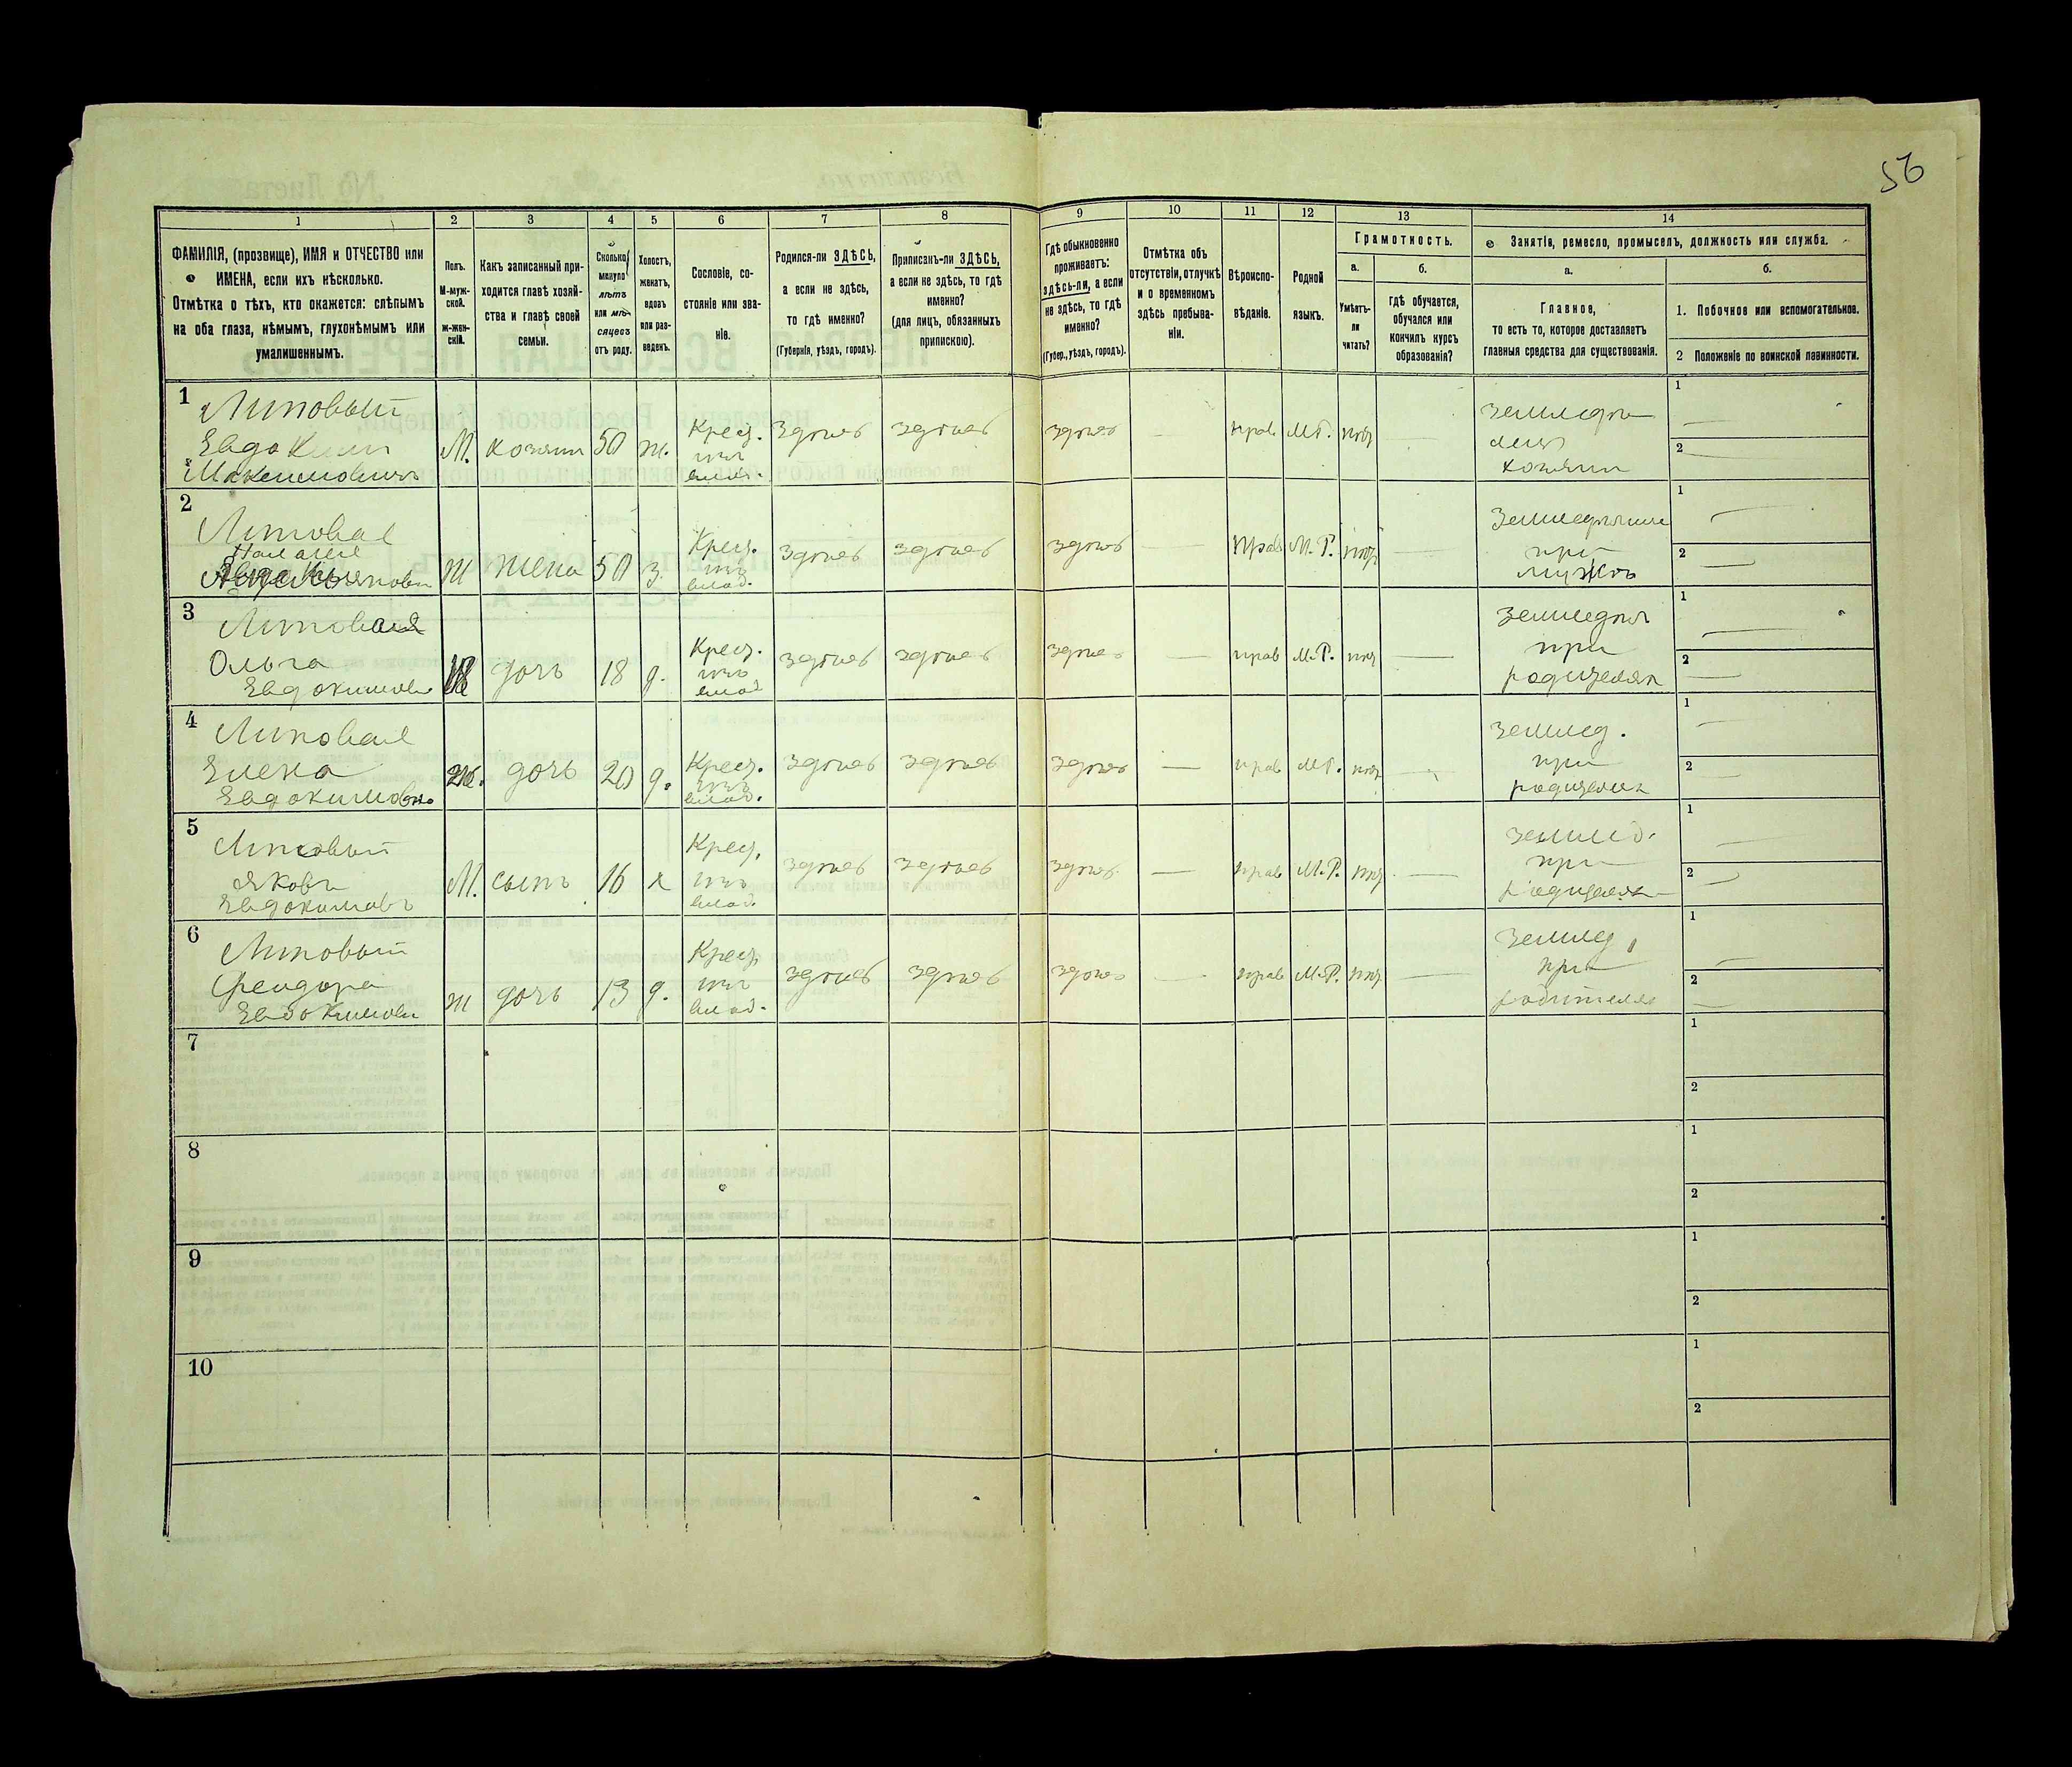 56
1 2 3 4 5 6 7 8 9 10 11 12 13 14
ФАМИЛІЯ, (прозвище), ИМЯ и ОТЧЕСТВО или
ИМЕНА, если ихъ нѣсколько.
Отмѣтка о тѣхъ, кто окажется: слѣпымъ
на оба глаза, нѣмымъ, глухонѣмымъ или
умалишеннымъ.
Полъ.
М-муж-
ской.
ж-жен-
скій.
Какъ записанный при-
ходится главѣ хозяй-
ства и главѣ своей
семьи.
Сколько
минуло
лѣтъ
или мѣ-
сяцевъ
отъ роду.
Холостъ,
женатъ,
вдовъ
или раз-
веденъ.
Сословіе, со-
стояніе или зва-
ніе.
Родился-ли ЗДѢСЬ,
а если не здѣсь,
то гдѣ именно?
(Губернія, уѣздъ, городъ).
Приписанъ-ли ЗДѢСЬ,
а если не здѣсь, то гдѣ
именно?
(для лицъ, обязанныхъ
припискою).
Гдѣ обыкновенно
проживаетъ:
здѣсь-ли, а если
не здѣсь, то гдѣ
именно?
(Губер., уѣздъ, городъ).
Отмѣтка объ
отсутствіи, отлучкѣ
и о временномъ
здѣсь пребыва-
ніи.
Вѣроиспо-
вѣданіе.
Родной
языкъ.
Грамотность.
а.
Умѣетъ-
ли
читать?
б.
гдѣ обучается,
обучался или
кончилъ курсъ
образованія?
Занятія, ремесло, промыселъ, должность или служба.
а.
Главное,
то есть то, которое доставляетъ
главныя средства для существованія.
б.
1. Побочное или вспомогательное.
2 Положеніе по воинской повинности.
1
Липовый
Евдоким
Максимовичъ
М. хозяин 50 ж.
Крест.
изъ
влад.
здѣсь здѣсь здѣсь — прав М.Р. нѣт —
земледѣ
лец
хозяин
1 —
2 —
2
Липовая
Ж жена 50 з.
Крест.
изъ
влад.
здѣсь здѣсь здѣсь — прав М.Р. нѣт —
при
мужѣ
1 —
2 —
3
Липовая
Ольга
Евдокимовна
дочь 18 д.
Крест.
изъ
влад
здѣсь здѣсь здѣсь — прав М.Р. нѣт —
земледѣл
при
родителях
1 —
2 —
4
Липовая
Елена
Евдокимовна
ж. дочь 20 д.
Крест.
изъ
влад.
здѣсь здѣсь здѣсь — прав М.Р. нѣт —
землед.
при
родителях
1 —
2 —
5
Липовый
Яковъ
Евдокимовъ
М. сынъ 16 х
Крест.
изъ
влад.
здѣсь здѣсь здѣсь — прав М.Р. нѣт —
землед.
при
родителях
1 —
2 —
6
Липовый
Феидора
Евдокимовн
ж дочь 13 д.
Крест
изъ
влад.
здѣсь здѣсь здѣсь — прав М.Р. нѣт —
землед,
при
родителях
1 —
2 —
7
1
2
8
1
2
9
1
2
10
1
2